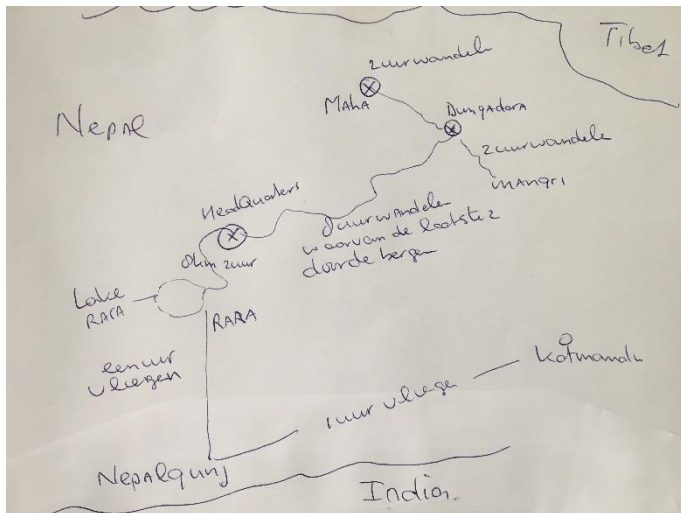 Tibet
2 uur wandele
Maha
Nepal
Dungadara
2 uur wandele
Mangri
HeadQuarters
8 uur wandele
waarvan de laatste 2
door de bergen
8km 2 uur
Lake
Rara
RARA
een uur
vliegen
Katmandu
1 uur vliege
Nepalgunj
India.